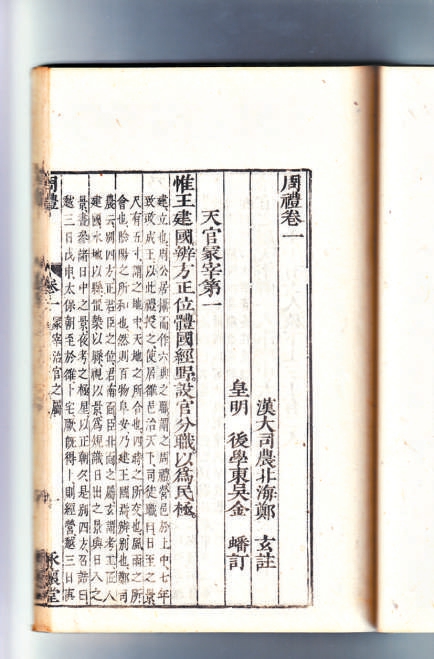 周禮卷一
漢大司農北海鄭　玄註
皇明　後學東吳金　蟠訂
天官冢宰第一
惟王建國辨方正位體國經野設官分職以爲民極
建立也周公居攝而作六典之職謂之周禮營邑於土中七年
致政成王以此禮授之使居雒邑治天下司徒職曰日至之景
尺有五寸謂之地中天地之所合也四時之所交也風雨之所
會也陰陽之所和也然則百物阜安乃建王國焉辨別也鄭司
農云別四方正君臣之位君南面臣北面之屬玄謂考工匠人
建國水地以縣置槷以縣眡以景爲規識日出之景與日入之
景晝參諸日中之景夜考之極星以正朝夕是別四方召誥曰
越三日戊申太保朝至於雒卜宅厥旣得卜則經營越三日庚
周禮　卷一　冢宰治官之屬　永懷堂